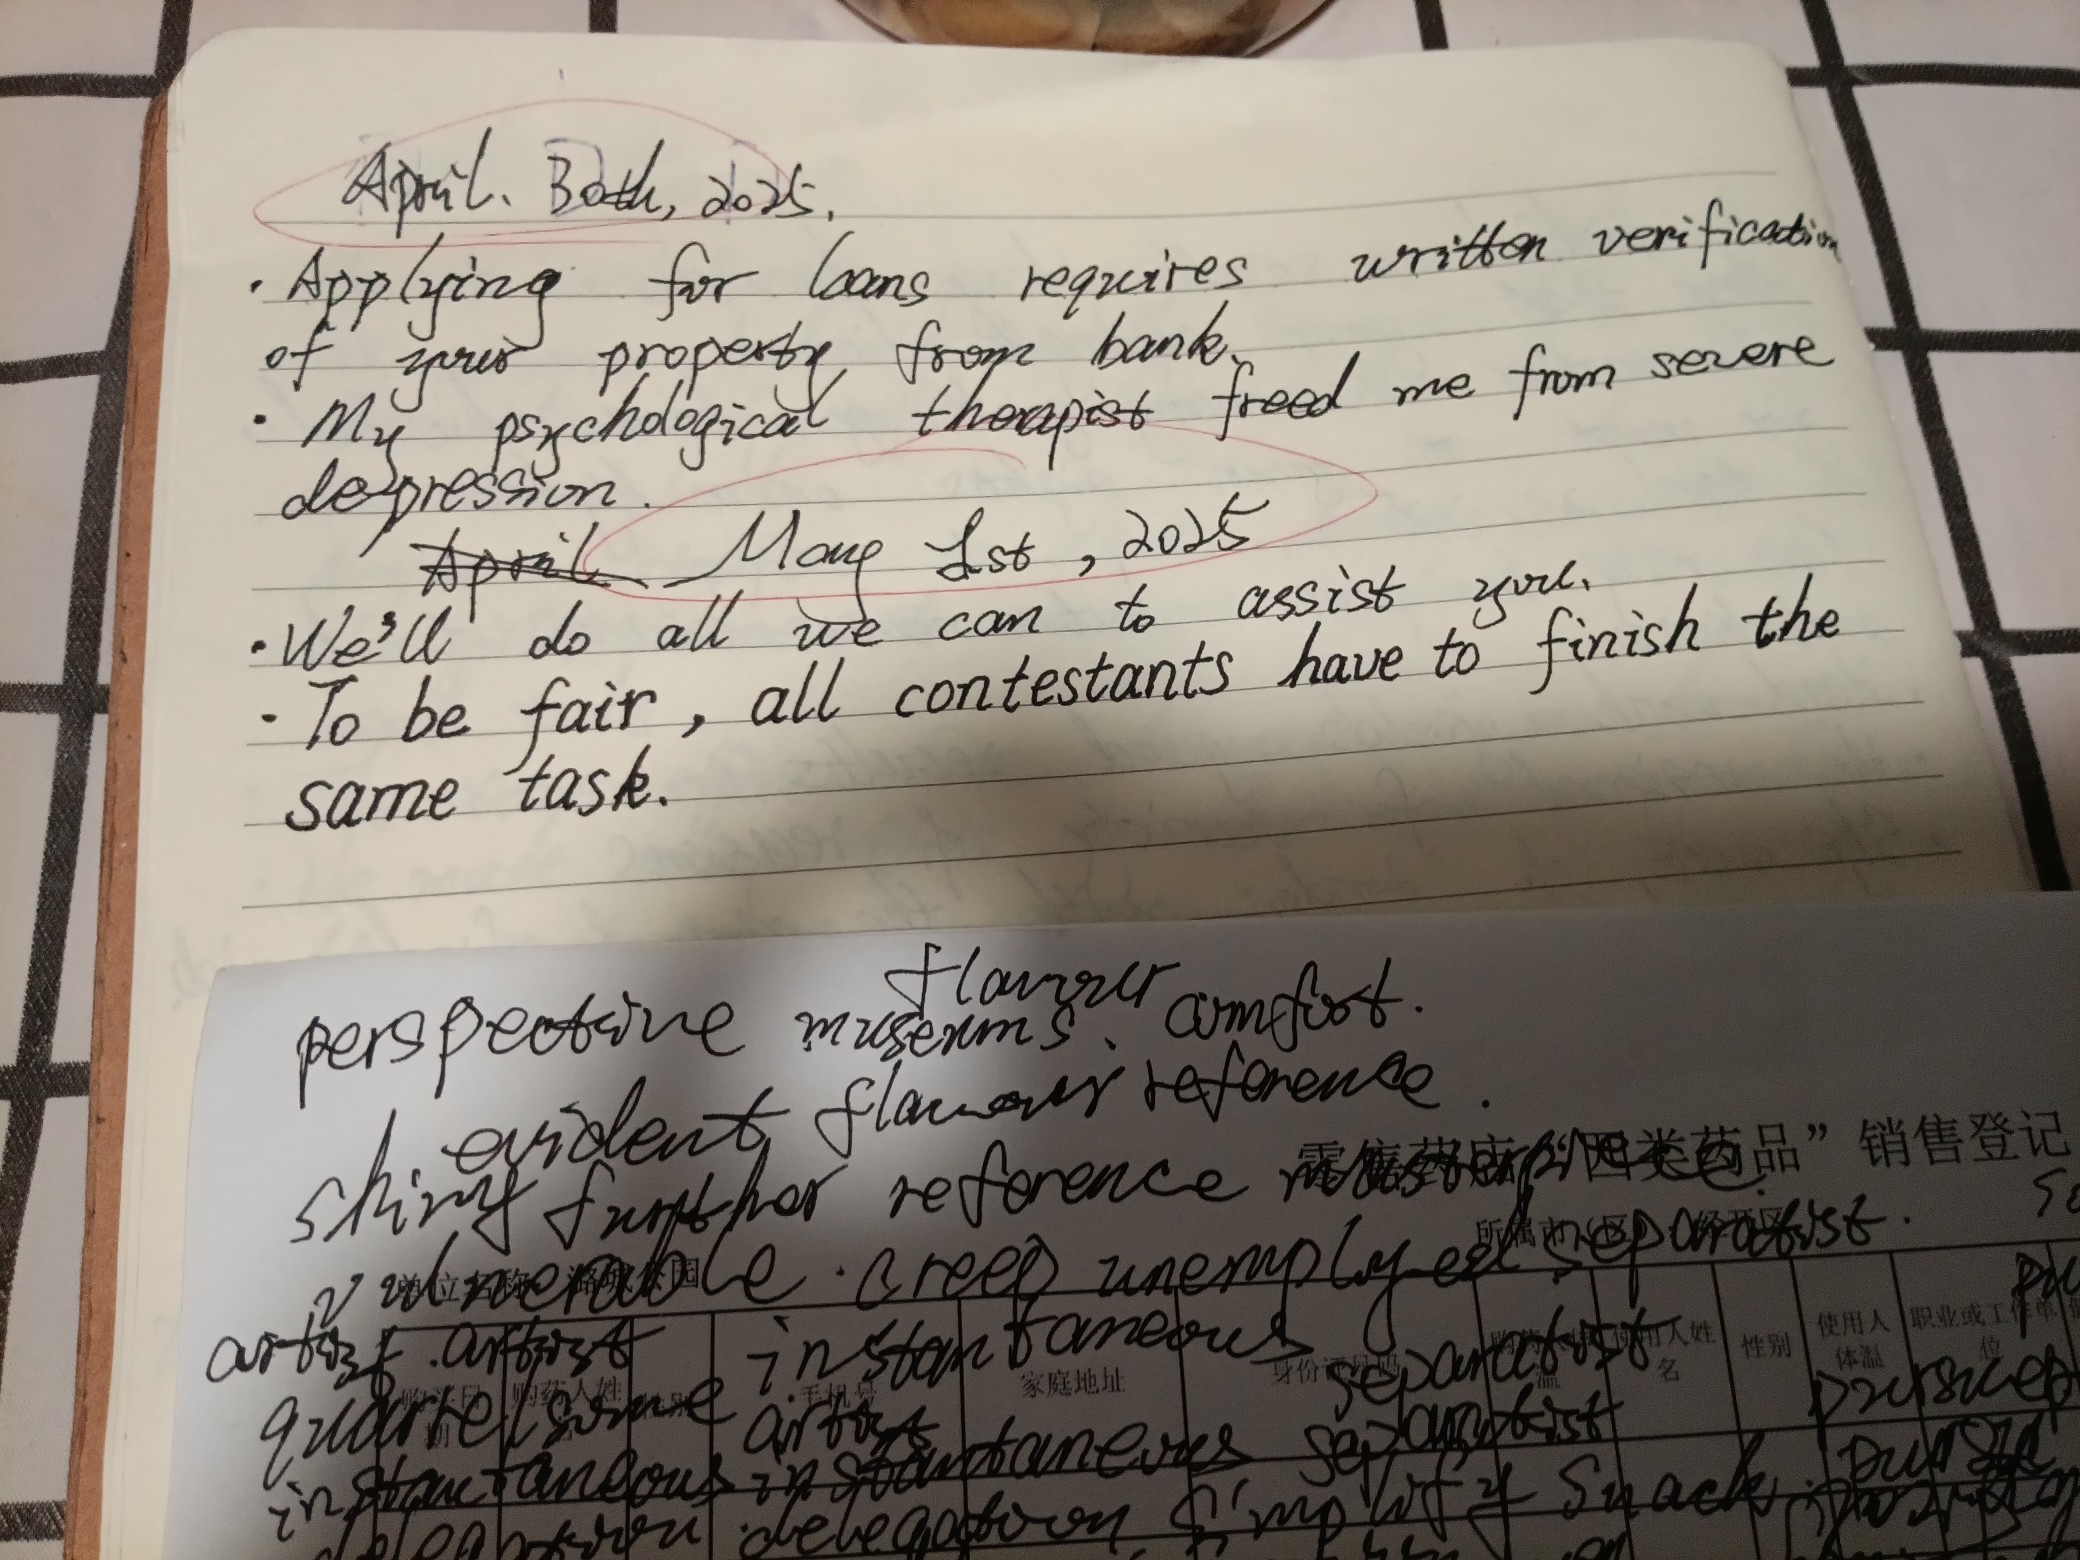 April. 30th, 2025.
· Applying for loans requires written verification
of your property from bank.
· My psychological therapist freed me from severe
depression.
April May 1st, 2025
· We'll do all we can to assist you.
· To be fair, all contestants have to finish the
same task.
flavour
perspective museums. comfort.
evident flavour reference.
零售药店“四类药品”销售登记
shiny further reference masterpiece.
所属市(区) 经开区
vulnerable. creep unemployed separatist.
单位名称
artist. artist instantaneous separatist
家庭地址 身份证号码 使用人姓名 性别 使用人体温 职业或工作单位
购药人姓 手机号
quarrelsome artist separatist
instantaneous instantaneous
delegation delegation simplify Snack